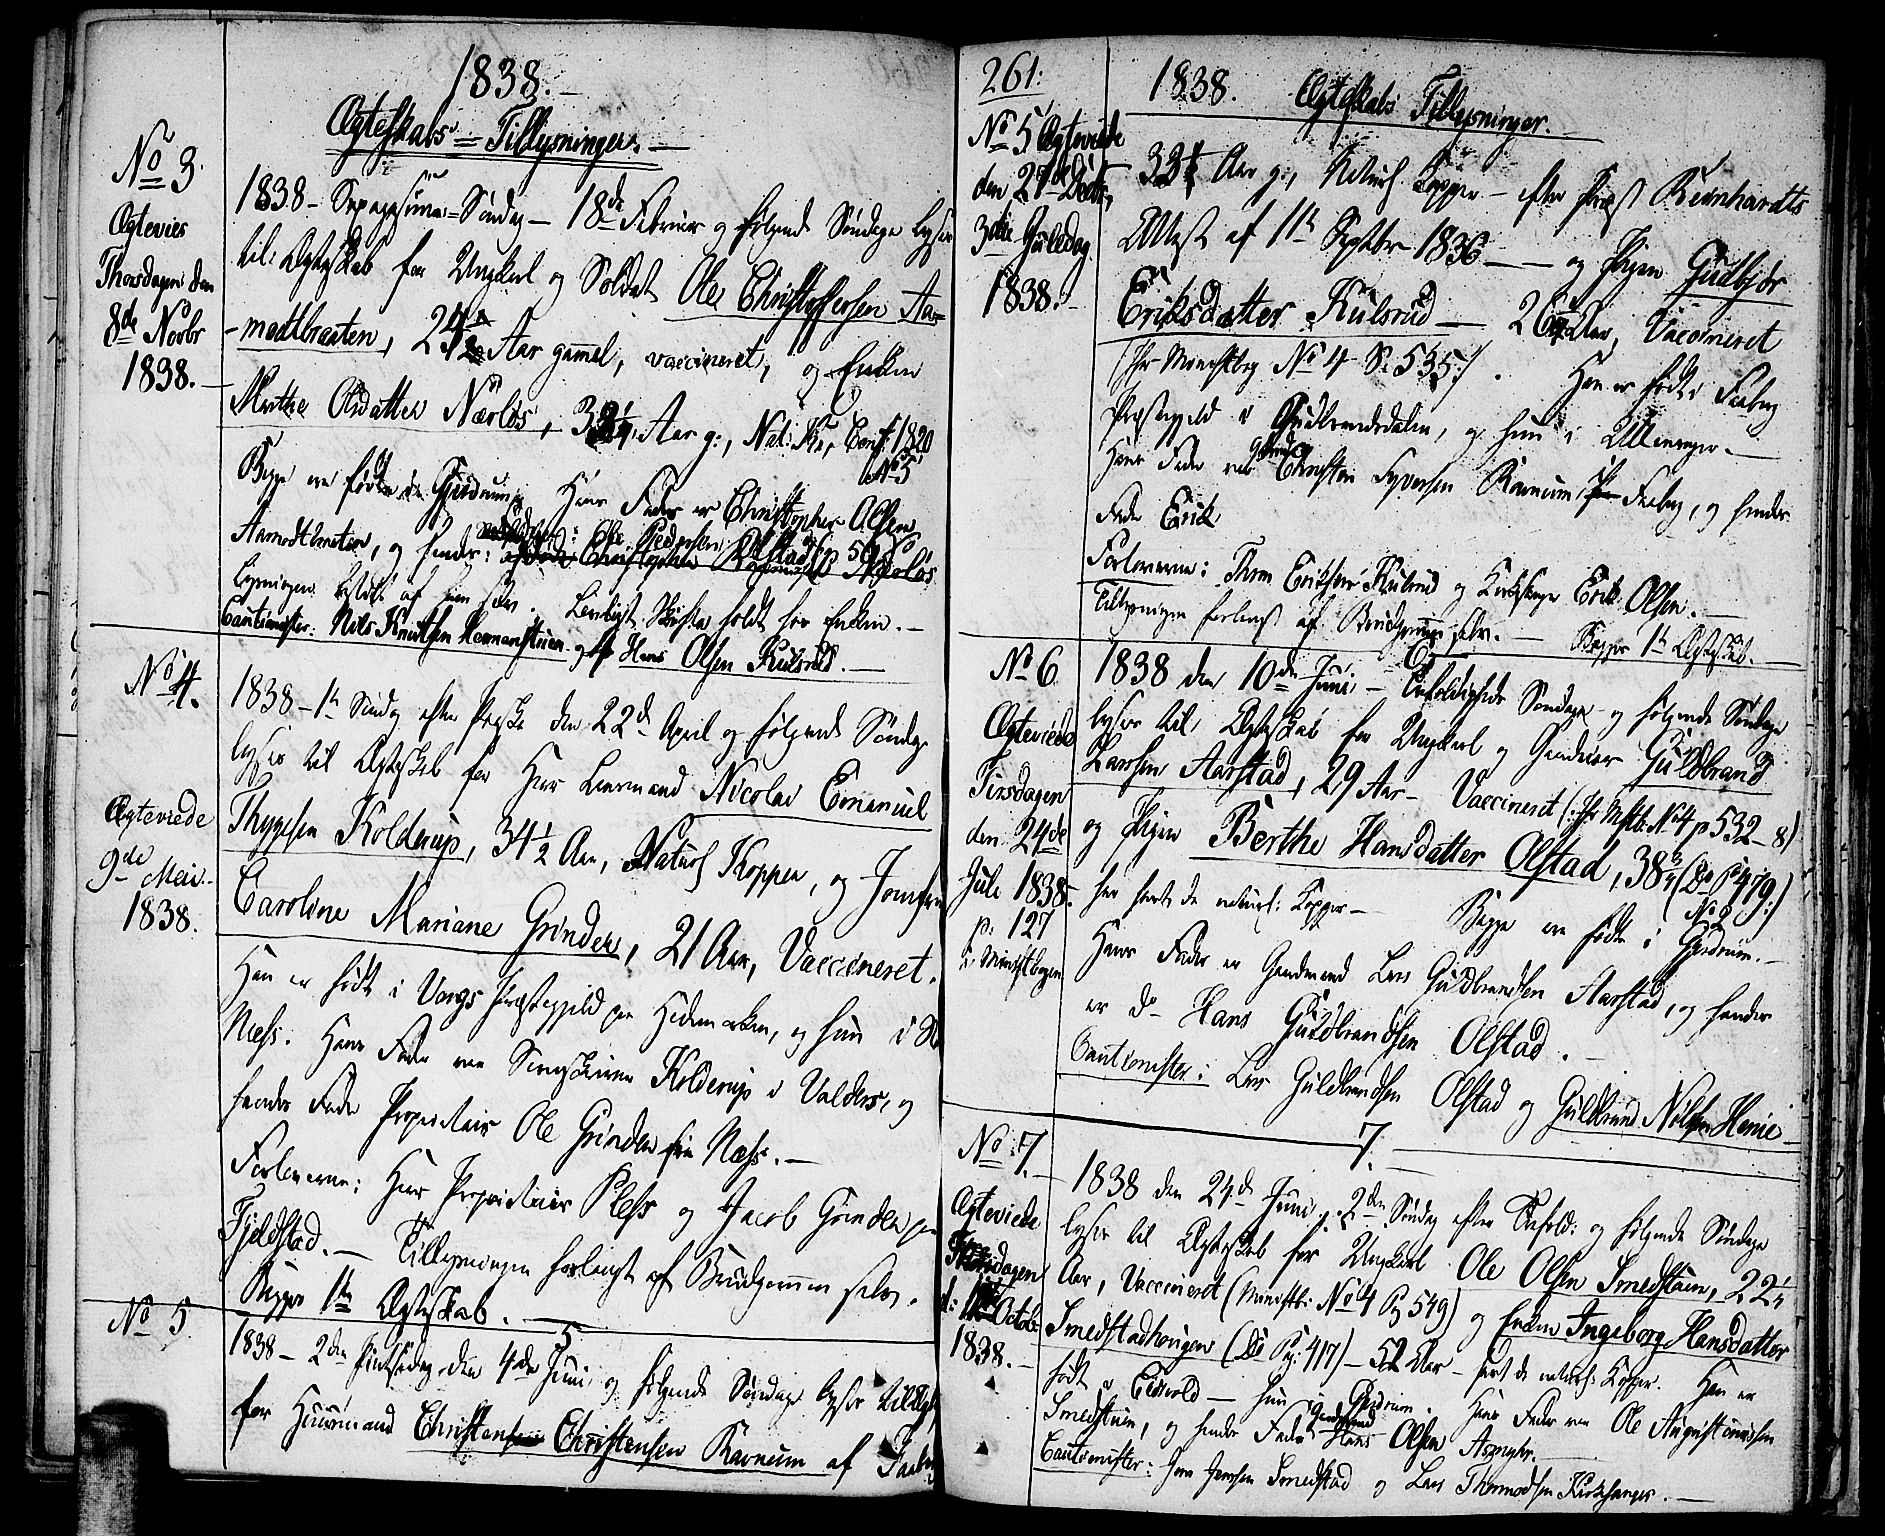 1838.
Ægteskabs=Tillysninger.
No 3
Ægtevies
Thorsdagen den
8de Novbr
1838.
1838 – Sexagesima=Søndag – 18de Februar og følgende Søndage lyses
til Ægteskab for Ungkarl og Soldat Ole Christophersen Aa-
-modtbraaten, 24½ Aar gammel, vaccineret, og Enken
Marthe Olsdatter Nærløs, Aar g:, Nat: K:, Conf: 1820
No 5
Begge ere fødte i Gjerdrum, Hans Fader er Christopher Olsen
Aamodtbraaten, og hendes: Ole Pedersen
Lysningen bestilt af ham selv. Lovligt Skifte holdt for Enken.
Cautionister: Nils Knudsen Hermanstuen og Hans Olsen Kulsrud.
No 4.
Ægteviede
9de Mai
1838.
1838 – 1ste Søndag efter Paaske den 22de April og følgende Søndage
lyses til Ægteskab for Herr Leiermand Nicolai Emanuel
Thygesen Kolderup, 34½ Aar, Naturl Kopper, og Jomfru
Caroline Mariane Grinder, 21 Aar, Vaccineret.
Han er født i Vangs Præstegjeld paa Hedemarken, og hun i
Næss. Hans Fader var Sorenskriver Kolderup i Valders, og
hendes Fader Proprietair Ole Grinder fra Næss.
Forloverne: Herr Proprietair Pless og Jacob Grinder paa
Fjeldstad. – Tillysningen forlangt af Brudgommen selv.
Begges 1ste Ægteskab.
No 5
5
1838 – 2den Pintsedag den 4de Juni og følgende Søndage lyses til Ægtsk
for Huusmand Christen Christensen Ravnum af Faaberg
261:
1838. Ægteskabs Tillysninger.
No 5 Ægteviede
den 27de Decbr,
3die Juledag
1838.
Aar g:, Naturl Kopper – efter Præst Reinhardts
Attest af 11te Septbr 1836 – og Pigen Gudbjør
Eriksdatter Kulsrud – 26 Aar, Vaccineret
(Thr Ministbog No 4 S: 535:). Han er født i Faaberg
Præstegjeld i Gudbrandsdalen, og hun i Ullensager.
Hans Fader var Christen Syversen Ravnum i Faaberg, og hendes
Fader Erik
Forloverne: Thor Eriksen Kulsrud og Kirkesanger Erik Olsen.
Tillysningen forlangt af Brudgommen selv. – Begges 1ste Ægteskab.
No 6
Ægteviede
Tirsdagen
den 24de
Juli 1838.
p: 127
i Ministbogen
6
1838 den 10de Juni – Trefoldigheds Søndag og følgende Søndage
lyses til Ægteskab for Ungkarl og Gaardeier Guldbrand
Larsen Aarstad, 29 Aar – Vaccineret (: Thr Mstb: No 4 p 532 – 8)
og Pigen Berthe Hansdatter Olstad, 38¾ (Do P 479:)
No 2
har havt de naturl: Kopper – Begge ere fødte i Gjerdrum.
Hans Fader er Gaardmand Lars Guldbrandsen Aarstad, og hendes
er do Hans Guldbrandsen Olstad.
Cautionister: Lars Guldbrandsen Olstad og Guldbrand Nilsen Hønie
No 7.
Ægteviede
Thorsdagen
d: Octob:
1838.
7.
1838 den 24de Juni, 2den Søndag efter Trefold: og følgende Søndage
lyses til Ægteskab for Ungkarl Ole Olsen Smedstuen, 22¼
Aar, Vaccineret (Ministb: No 4 Pg 549) og Enken Ingeborg Hansdatter
Smedstadhougen (Do Pg: 417) – 52 Aar – havt de naturl: Kopper. Han er
født i Eidsvold – hun i Gjerdrum. Hans Fader var Ole Augustinusen
Smedstuen, og hendes Fader Gaardmand Hans Olsen Asmyhr.
Cautionister: Jens Jensen Smedstad og Lars Thormodsen Kirkesanger.